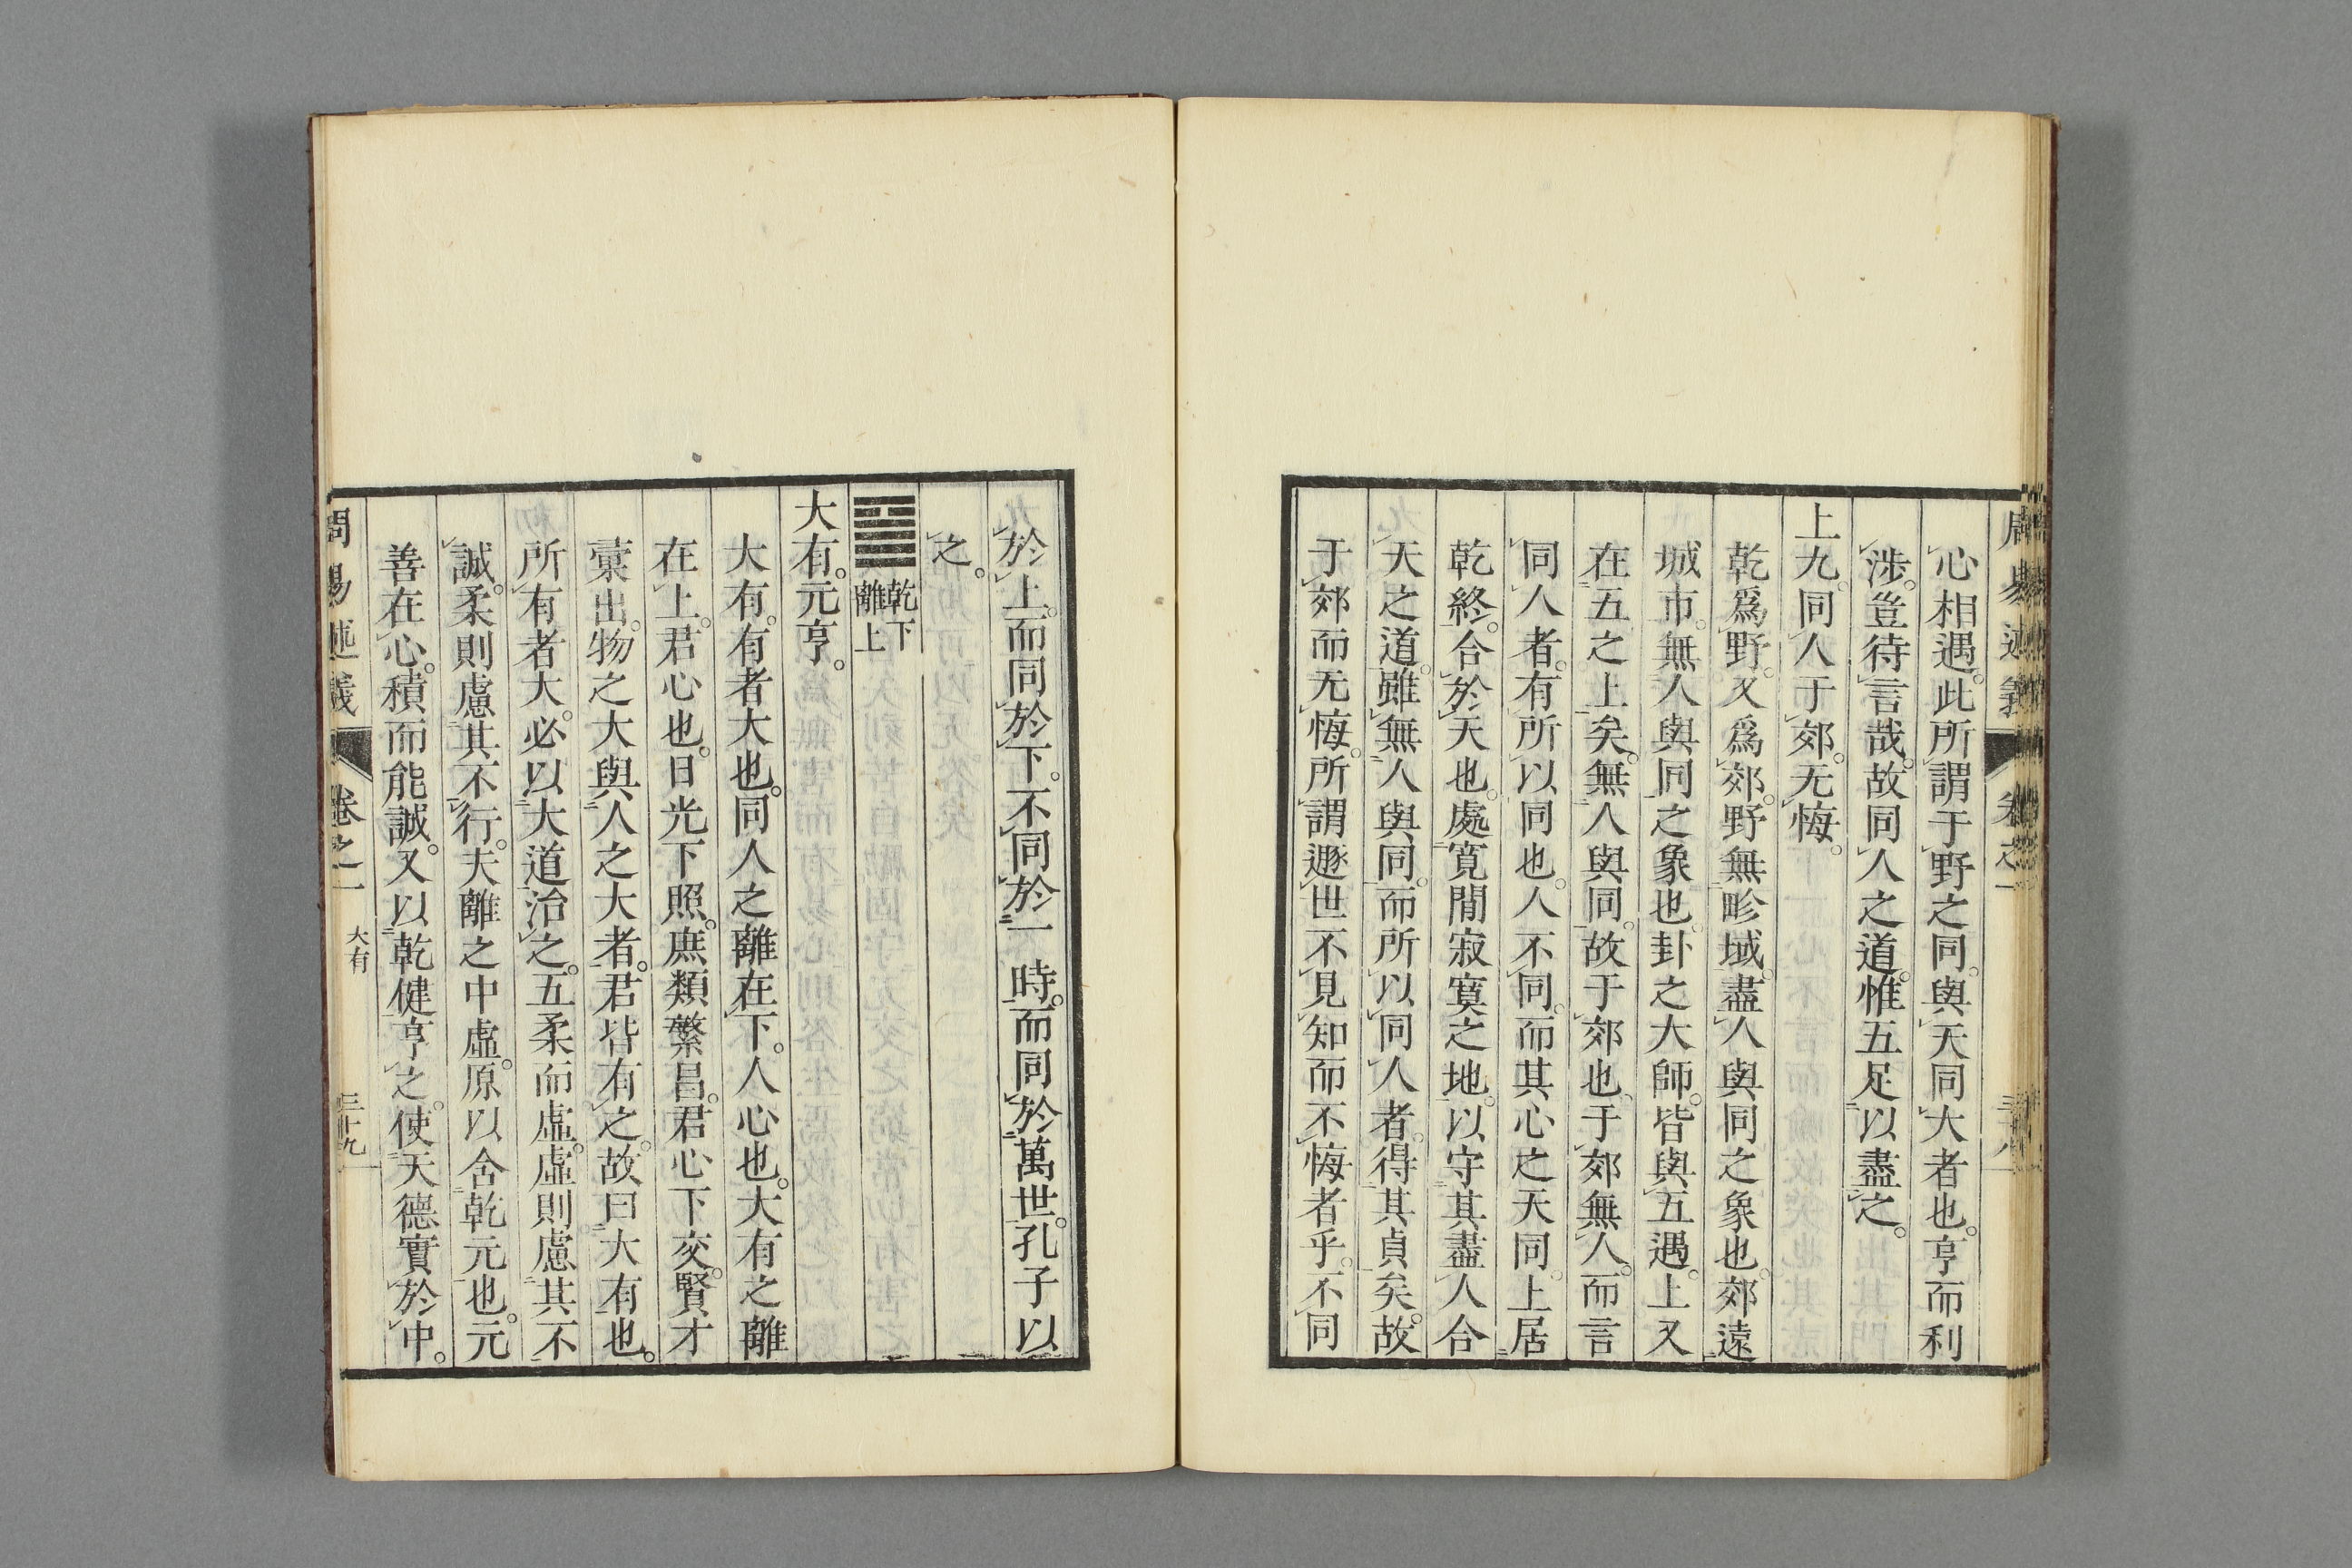 周易述義 卷之一 三十八
心相遇。此所謂于野之同。與天同大者也。亨而利
涉。豈待言哉。故同人之道。惟五足以盡之。
上九。同人于郊。无悔。
乾爲野。又爲郊。野無畛域。盡人與同之象也。郊遠
城市。無人與同之象也。卦之大師。皆與五遇。上又
在五之上矣。無人與同。故于郊也。于郊無人。而言
同人者。有所以同也。人不同。而其心之天同。上居
乾終。合於天也。處寬閒寂寞之地。以守其盡人合
天之道。雖無人與同。而所以同人者。得其貞矣。故
于郊而无悔。所謂遯世不見知而不悔者乎。不同
於上。而同於下。不同於一時。而同於萬世。孔子以
之。
䷍ 乾下
離上
大有。元亨。
大有。有者大也。同人之離在下。人心也。大有之離
在上。君心也。日光下照。庶類繁昌。君心下交。賢才
彙出。物之大與人之大者。君皆有之。故曰大有也。
所有者大。必以大道治之。五柔而虛。虛則慮其不
誠。柔則慮其不行。夫離之中虛。原以含乾元也。元
善在心。積而能誠。又以乾健亨之。使天德實於中。
周易述義 卷之一 大有 三十九